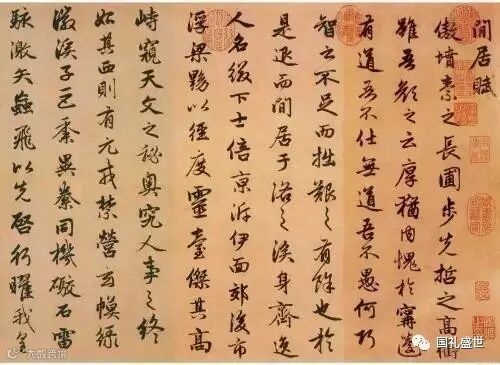 間居賦
傲墳素之長圃步先哲之高衢
雖吾顏之云厚猶内愧於甯蘧
有道吾不仕無道吾不愚何巧
智之不足而拙艱之有餘也於
是退而間居于洛之涘身齊逸
人名綴下士倍京泝伊面郊後市
浮梁黝以徑度靈臺傑其高
峙窺天文之秘奧究人事之終
始其西則有元戎禁營玄幙綠
徽溪子巨黍異絭同機礮石雷
駭激矢蝱飛以先啓行曜我皇
大数跨境
国礼盛世